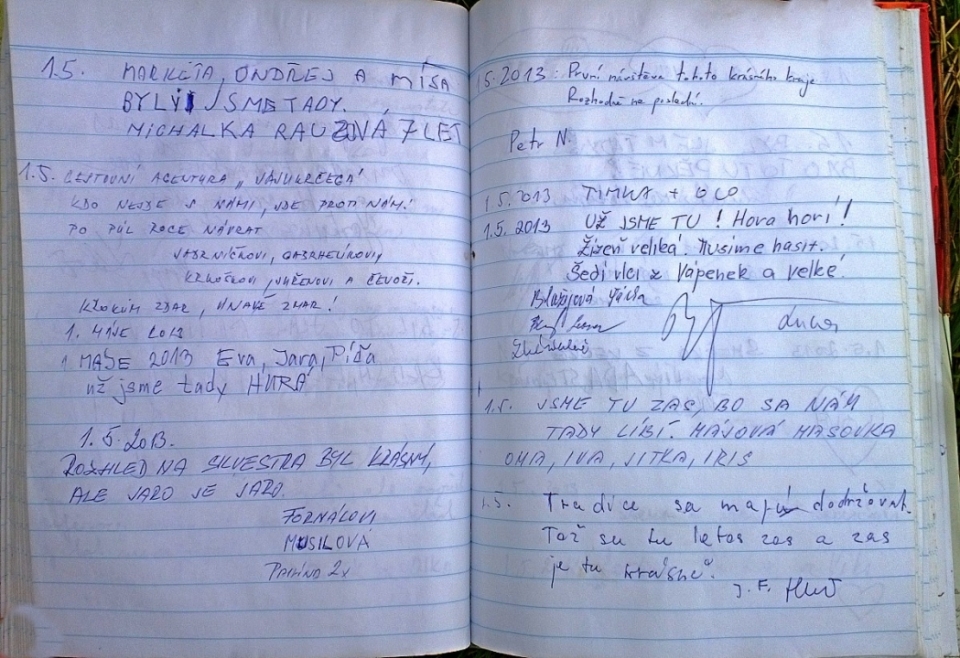 1.5. MARKÉTA, ONDŘEJ A MÍŠA
BYLI JSME TADY.
MICHALKA RAUZNÁ 7 LET
1.5. CESTOVNÍ AGENTURA
KDO NEJDE S NÁMI, JDE PROTI NÁM!
PO PŮL ROCE NÁVRAT
A ČEVOŠI.
KROKŮM ZDAR, JINAK ZMAR!
1. MÁJE 2013
1 MÁJE 2013 Eva, Jara, Píďa
už jsme tady HURÁ
1.5.2013.
ROZHLED NA SILVESTRA BYL KRÁSNÝ,
ALE JARO JE JARO.
FORNÁLOVI
MUSILOVÁ
2x
.5.2013: První návštěva tohoto krásného kraje
Rozhodně ne poslední.
Petr N.
1.5.2013 TIMKA + OLO
1.5.2013 UŽ JSME TU! Hora hoří!
Žízeň veliká. Musíme hasit.
Šedí vlci z Vápenek a velké.
Blažejová
Lucas
1.5. JSME TU ZAS, BO SA NÁM
TADY LÍBÍ. MÁJOVÁ MASOVKA
OMA, IVA, JITKA, IRIS
1.5. Tradice sa majú dodržovat.
Tož su tu letos zas a zas
je tu krásně.
J. F.